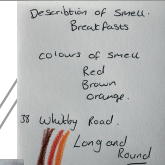 Describtion of Smell.
Breakfasts
Colours of Smell
Red
Brown
Orange.
38 Whitby Road.
Long and
Round